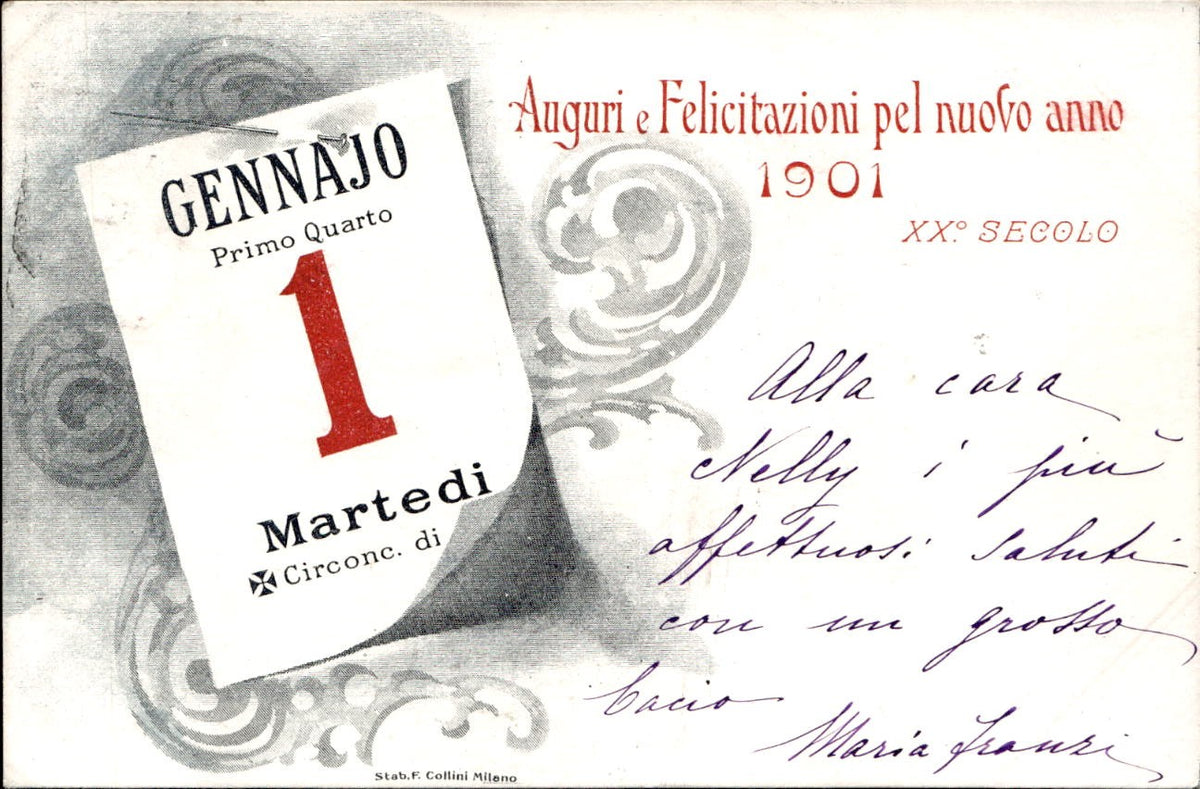 GENNAJO
Primo Quarto
1
Martedi
✠ Circonc. di
Auguri e Felicitazioni pel nuovo anno
1901
XX.º SECOLO
Alla cara
Nelly i più
affettuosi saluti
con un grosso
bacio
Maria Franzi
Stab. F. Collini Milano